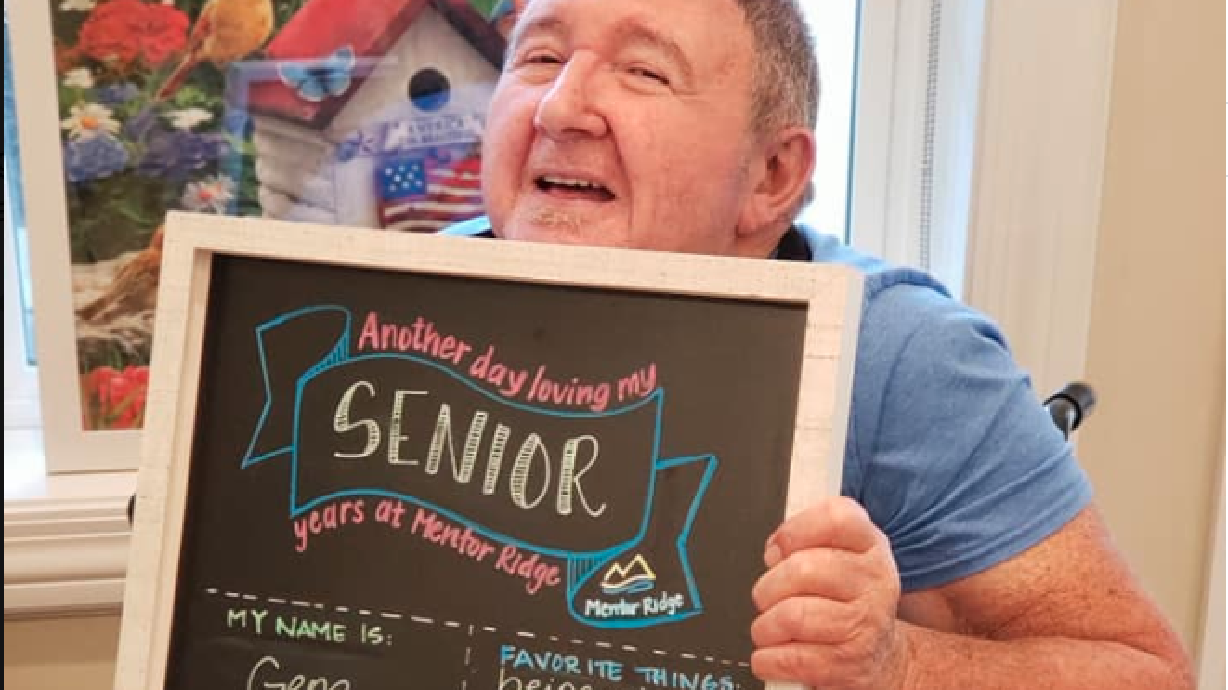 Another day loving my
SENIOR
years at Mentor Ridge
Mentor Ridge
MY NAME IS:
Gene
FAVORITE THINGS:
being